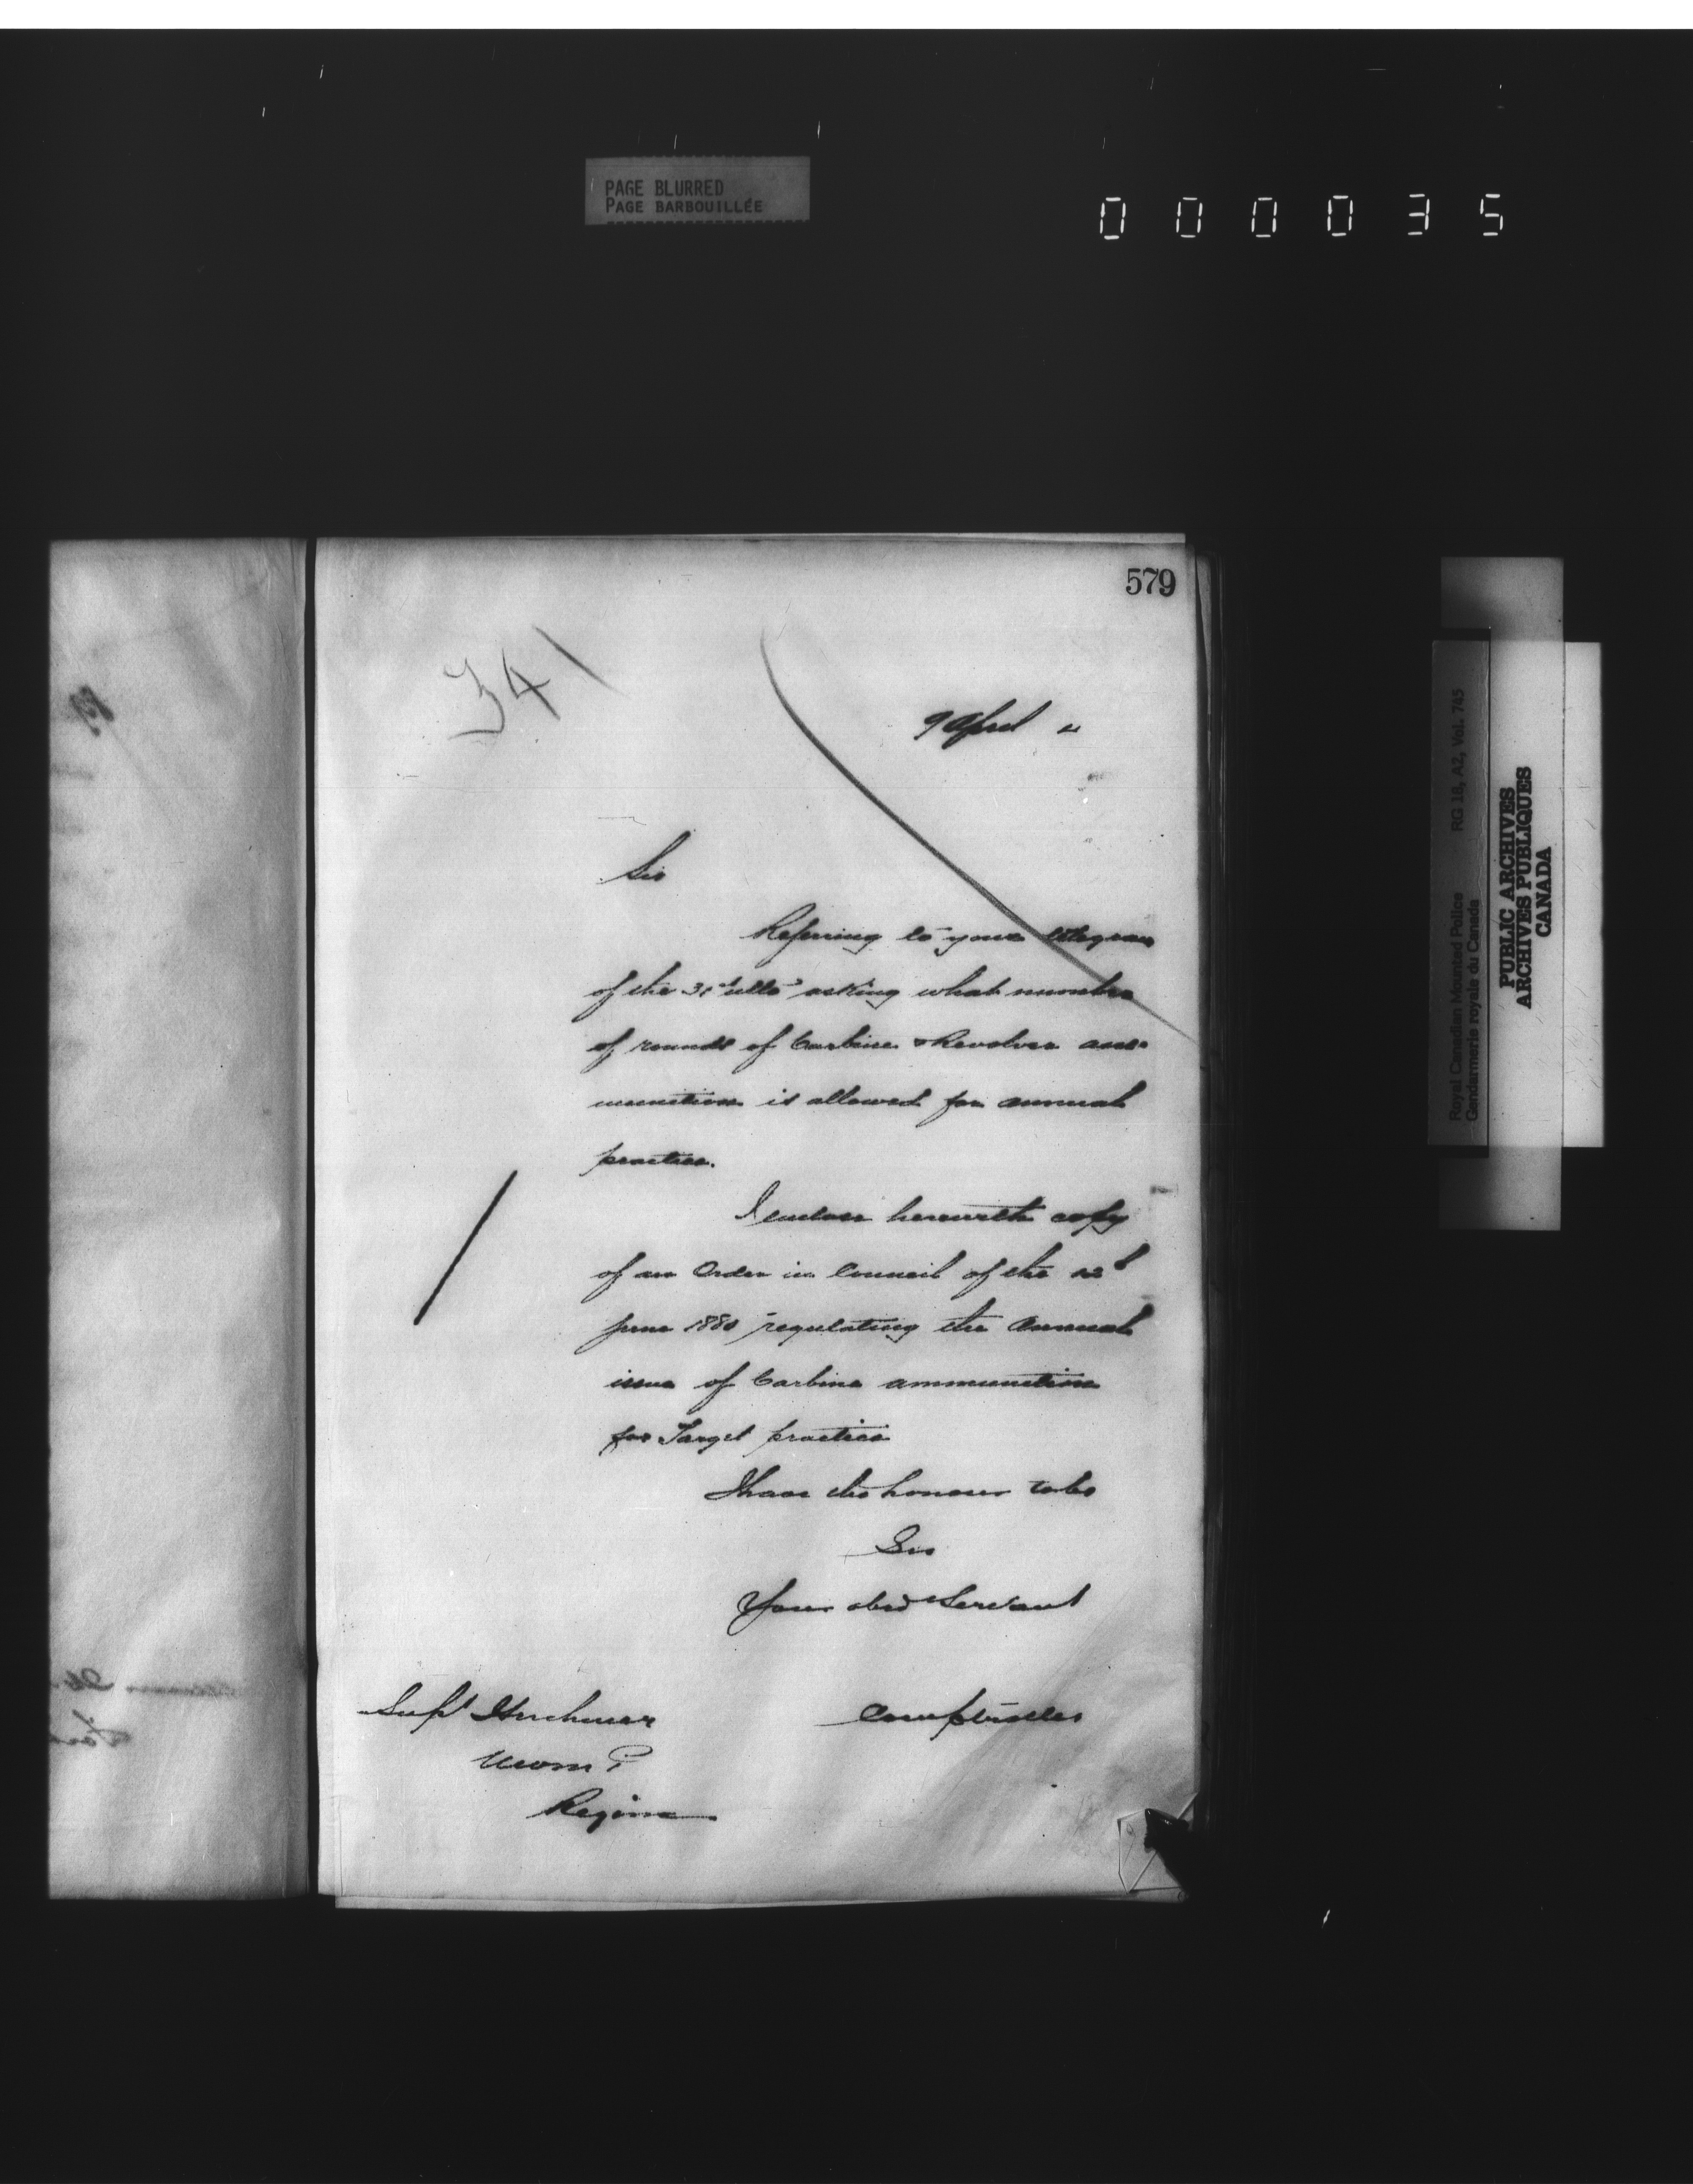 PAGE BLURRED
PAGE BARBOUILLÉE
000035
579
341
9 April 4
Sir
Referring to your telegram
of the 31st ulto asking what number
of rounds of Carbine & Revolver am-
munition is allowed for annual
practice.
I enclose herewith copy
of an Order in Council of the
June 1880 regulating the annual
issue of Carbine ammunition
for Target practice
I have the honour to be
Sir
Your obed Servant
Comptroller
Supt Herchmer
NWM P
Regina
Royal Canadian Mounted Police RG 18, A2, Vol. 745
Gendarmerie royale du Canada
PUBLIC ARCHIVES
ARCHIVES PUBLIQUES
CANADA